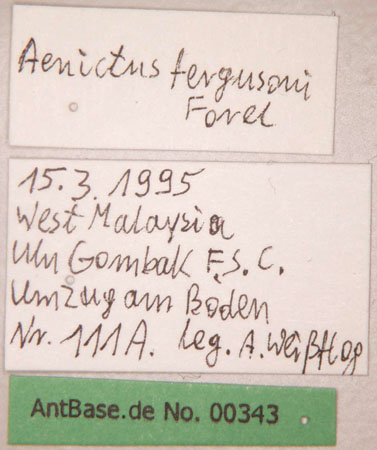 Aenictus fergusoni
Forel
15.3.1995
West Malaysia
Ulu Gombak F.S.C.
Umzug am Boden
Nr. 111A. leg. A. Weißflog
AntBase.de No. 00343